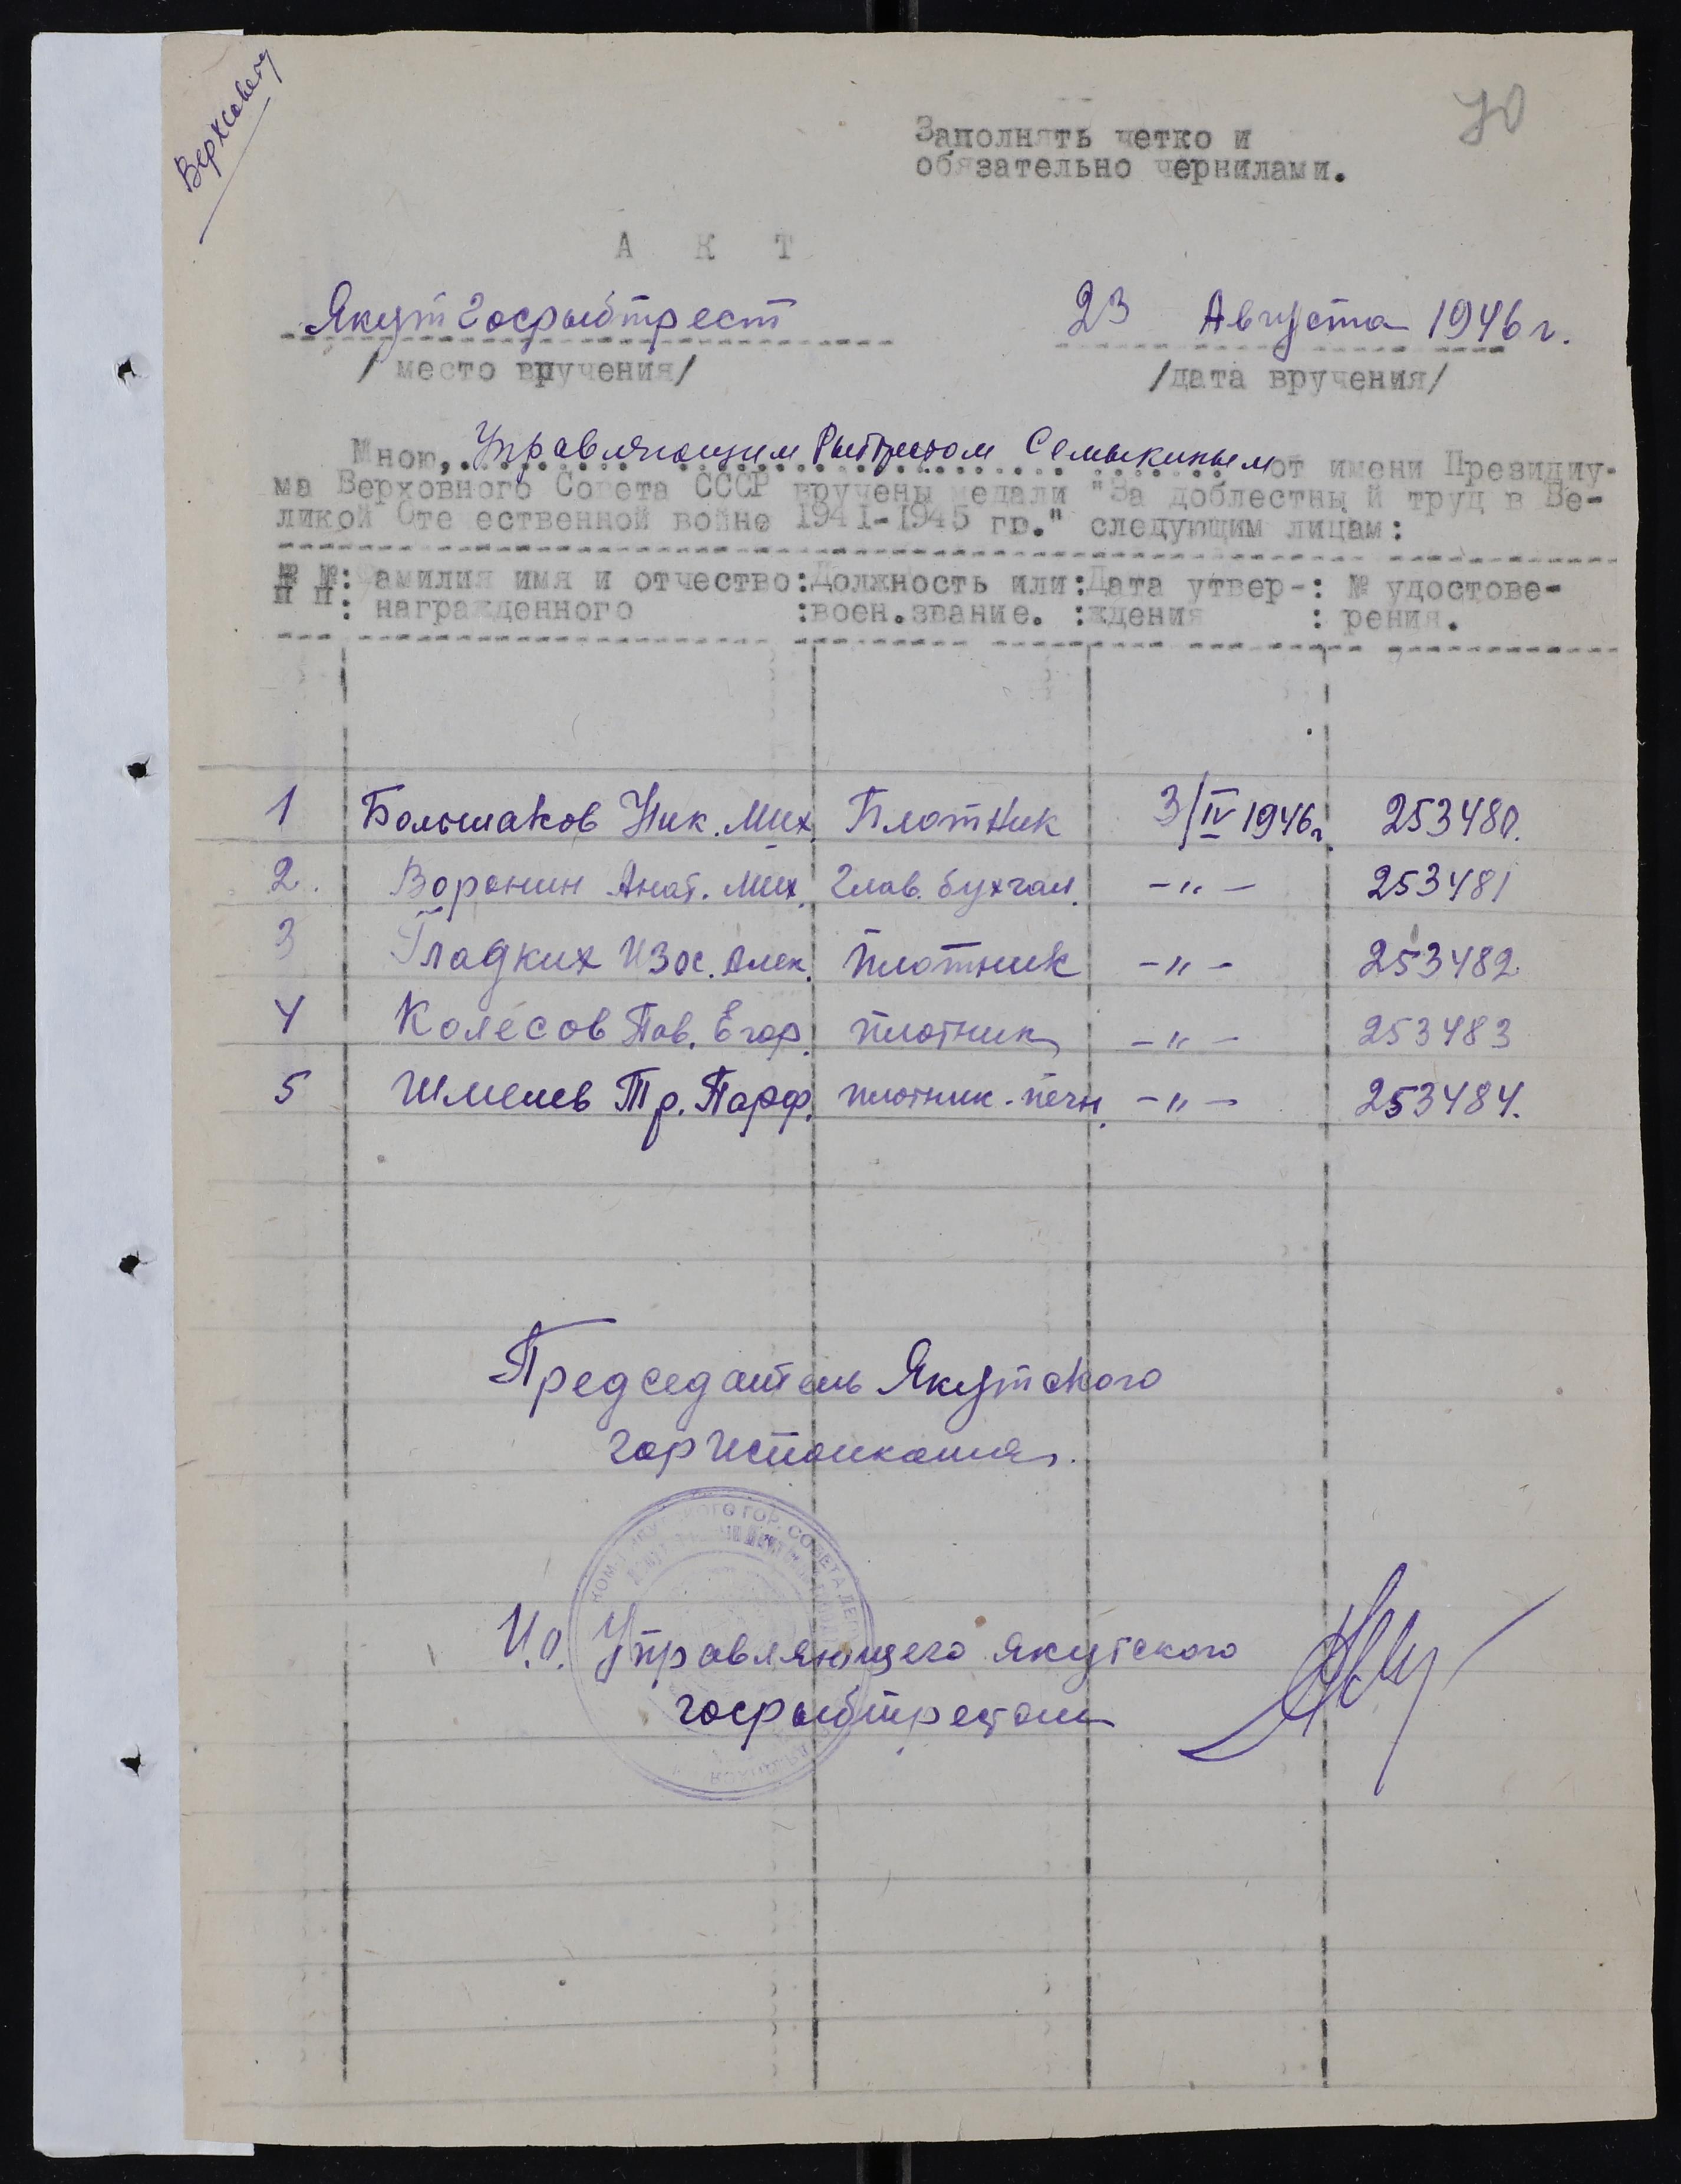 Верхсовету
70
Заполнять четко и
обязательно чернилами.
А К Т
Якутгосрыбтрест 23 Августа 1946 г.
/место вручения/ /дата вручения/
Мною, Управляющим Рыбтрестом Семыкиным от имени Президиу-
ма Верховного Совета СССР вручены медали "За доблестный труд в Ве-
ликой Отечественной войне 1941-1945 гг." следующим лицам:
№ №: Фамилия имя и отчество:Должность или:Дата утвер-: № удостове-
п п: награжденного :воен.звание. :ждения : рения.
1 Большаков Ник. Мих. Плотник 3/IV 1946г. 253480.
2. Воронин Анат. Мих. Глав. бухгал. -"- 253481
3 Гладких Изос. Алек. плотник -"- 253482.
4 Колесов Пав. Егор. плотник -"- 253483
5 Шмелев Тр. Парф. плотник-печн. -"- 253484.
Председатель Якутского
горисполкома.
КОМ. ЯКУТСКОГО ГОР. СОВЕТА ДЕП
И.о. Управляющего якутского
госрыбтрестом